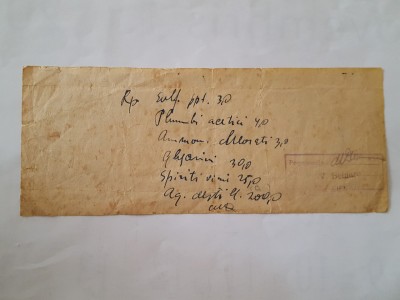 Rp Sulf. ppt. 3,0
Plumbi acetici 4,0
Ammon. chlorati 3,0
Glycerini 30,0
Spiriti vini 25,0
Aq. destill. 200,0